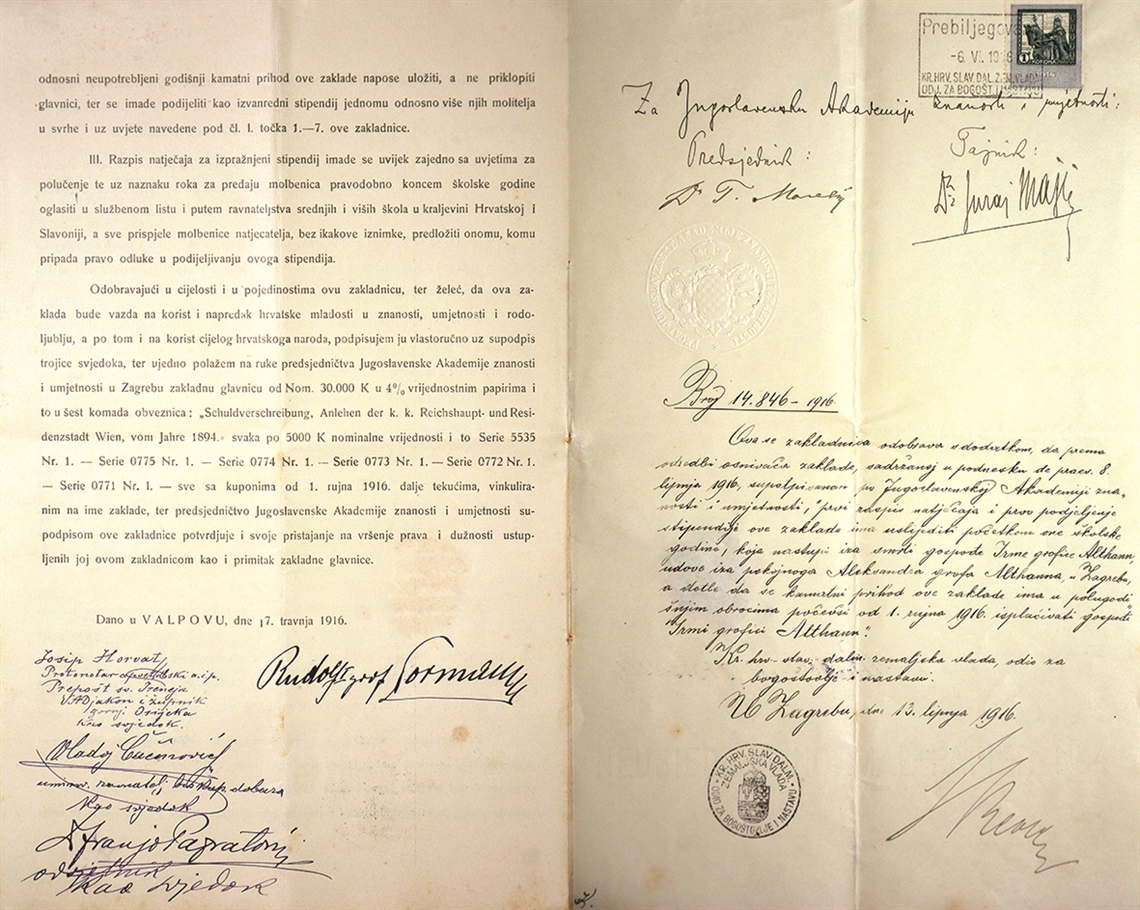 odnosni neupotrebljeni godišnji kamatni prihod ove zaklade napose uložiti, a ne priklopiti
glavnici, ter se imade podijeliti kao izvanredni stipendij jednomu odnosno više njih molitelja
u svrhe i uz uvjete navedene pod čl. I. točka 1.—7. ove zakladnice.
III. Razpis natječaja za izpražnjeni stipendij imade se uvijek zajedno sa uvjetima za
polučenje te uz naznaku roka za predaju molbenica pravodobno koncem školske godine
oglasiti u službenom listu i putem ravnateljstva srednjih i viših škola u kraljevini Hrvatskoj i
Slavoniji, a sve prispjele molbenice natjecatelja, bez ikakove iznimke, predložiti onomu, komu
pripada pravo odluke u podijeljivanju ovoga stipendija.
Odobravajući u cijelosti i u pojedinostima ovu zakladnicu, ter želeć, da ova za-
klada bude vazda na korist i napredak hrvatske mladosti u znanosti, umjetnosti i rodo-
ljublju, a po tom i na korist cijelog hrvatskoga naroda, podpisujem ju vlastoručno uz supodpis
trojice svjedoka, ter ujedno polažem na ruke predsjedničtva Jugoslavenske Akademije znanosti
i umjetnosti u Zagrebu zakladnu glavnicu od Nom. 30.000 K u 4% vrijednostnim papirima i
to u šest komada obveznica: „Schuldverschreibung, Anlehen der k. k. Reichshaupt- und Resi-
denzstadt Wien, vom Jahre 1894.“ svaka po 5000 K nominalne vrijednosti i to Serie 5535
Nr. 1. — Serie 0775 Nr. 1. — Serie 0774 Nr. 1. — Serie 0773 Nr. 1. — Serie 0772 Nr. 1.
— Serie 0771 Nr. 1. — sve sa kuponima od 1. rujna 1916. dalje tekućima, vinkulira-
nim na ime zaklade, ter predsjedničtvo Jugoslavenske Akademije znanosti i umjetnosti su-
podpisom ove zakladnice potvrdjuje i svoje pristajanje na vršenje prava i dužnosti ustup-
ljenih joj ovom zakladnicom kao i primitak zakladne glavnice.
Dano u VALPOVU, dne 17. travnja 1916.
Josip Horvat
Protonotar apostolski a.i.p.
Prepošt sv. Ireneja
VADjakon i župnik
gornj. Osijeka
kao svjedok.
Rudolf grof Normann
Vladoj Ćaćinović
biskup. dobara
kao svjedok
Dr Franjo Papratović
odvjetnik
kao svjedok
Prebiljegovano
-6. VI. 1916
KR. HRV. SLAV. DAL. ZEM. VLADA
ODJ. ZA BOGOŠT. I NASTAVU
1
Za Jugoslavensku Akademiju znanosti i umjetnosti:
Predsjednik: Tajnik:
Dr T. Maretić Dr Juraj Majić
Broj 14.846 – 1916
Ova se zakladnica odobrava s dodatkom, da prema
odredbi osnivača zaklade, sadržanoj u podnesku de praes. 8.
lipnja 1916, supotpisanom po Jugoslavenskoj Akademiji zna-
nosti i umjetnosti, "prvi raspis natječaja i prvo podjeljenje
stipendija ove zaklade ima uslijediti početkom one školske
godine, koja nastupi iza smrti gospođe Irme grofice Althann,
udove iza pokojnoga Aleksandra grofa Althanna, u Zagrebu,
a dotle da se kamatni prihod ove zaklade ima u polugodi-
šnjim obrocima počevši od 1. rujna 1916. isplaćivati gospođi
Irmi grofici Althann".
Kr. hrv.-slav.-dalm. zemaljska vlada, odio za
bogoštovlje i nastavu.
U Zagrebu, dne 13. lipnja 1916.
KR. HRV. SLAV. DALM. ZEMALJSKA VLADA
ODIO ZA BOGOŠTOVLJE I NASTAVU